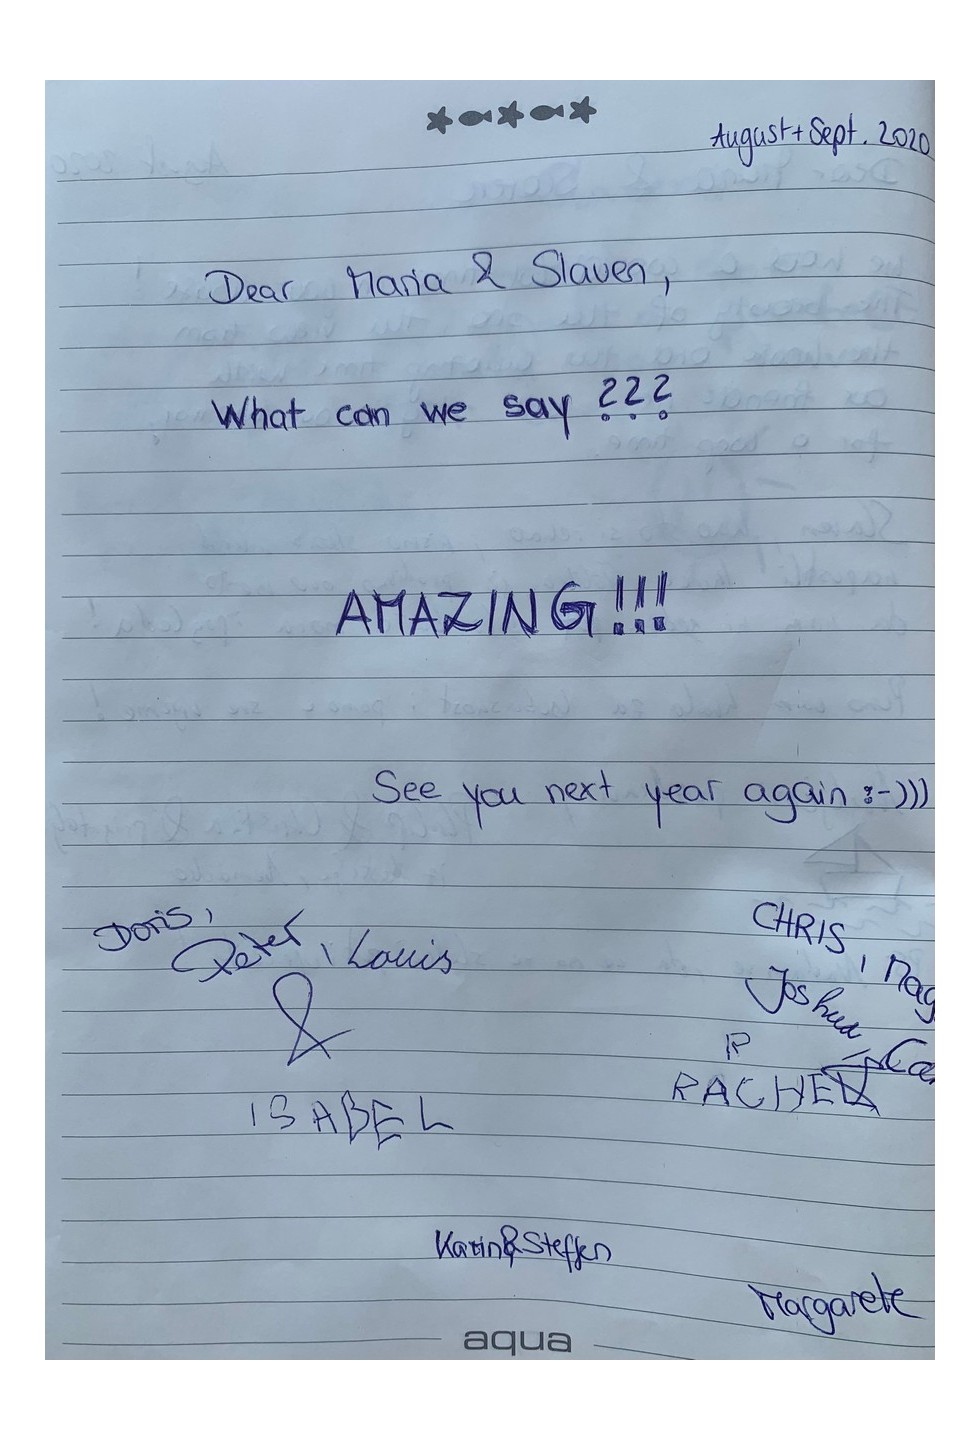 August + Sept. 2020
Dear Maria & Slaven,
What can we say ???
AMAZING!!!
See you next year again :-)))
Doris,
Peter, Louis
&
ISABEL
CHRIS,
Joshua
R
RACHEL
Karin & Steffen
Margarete
aqua